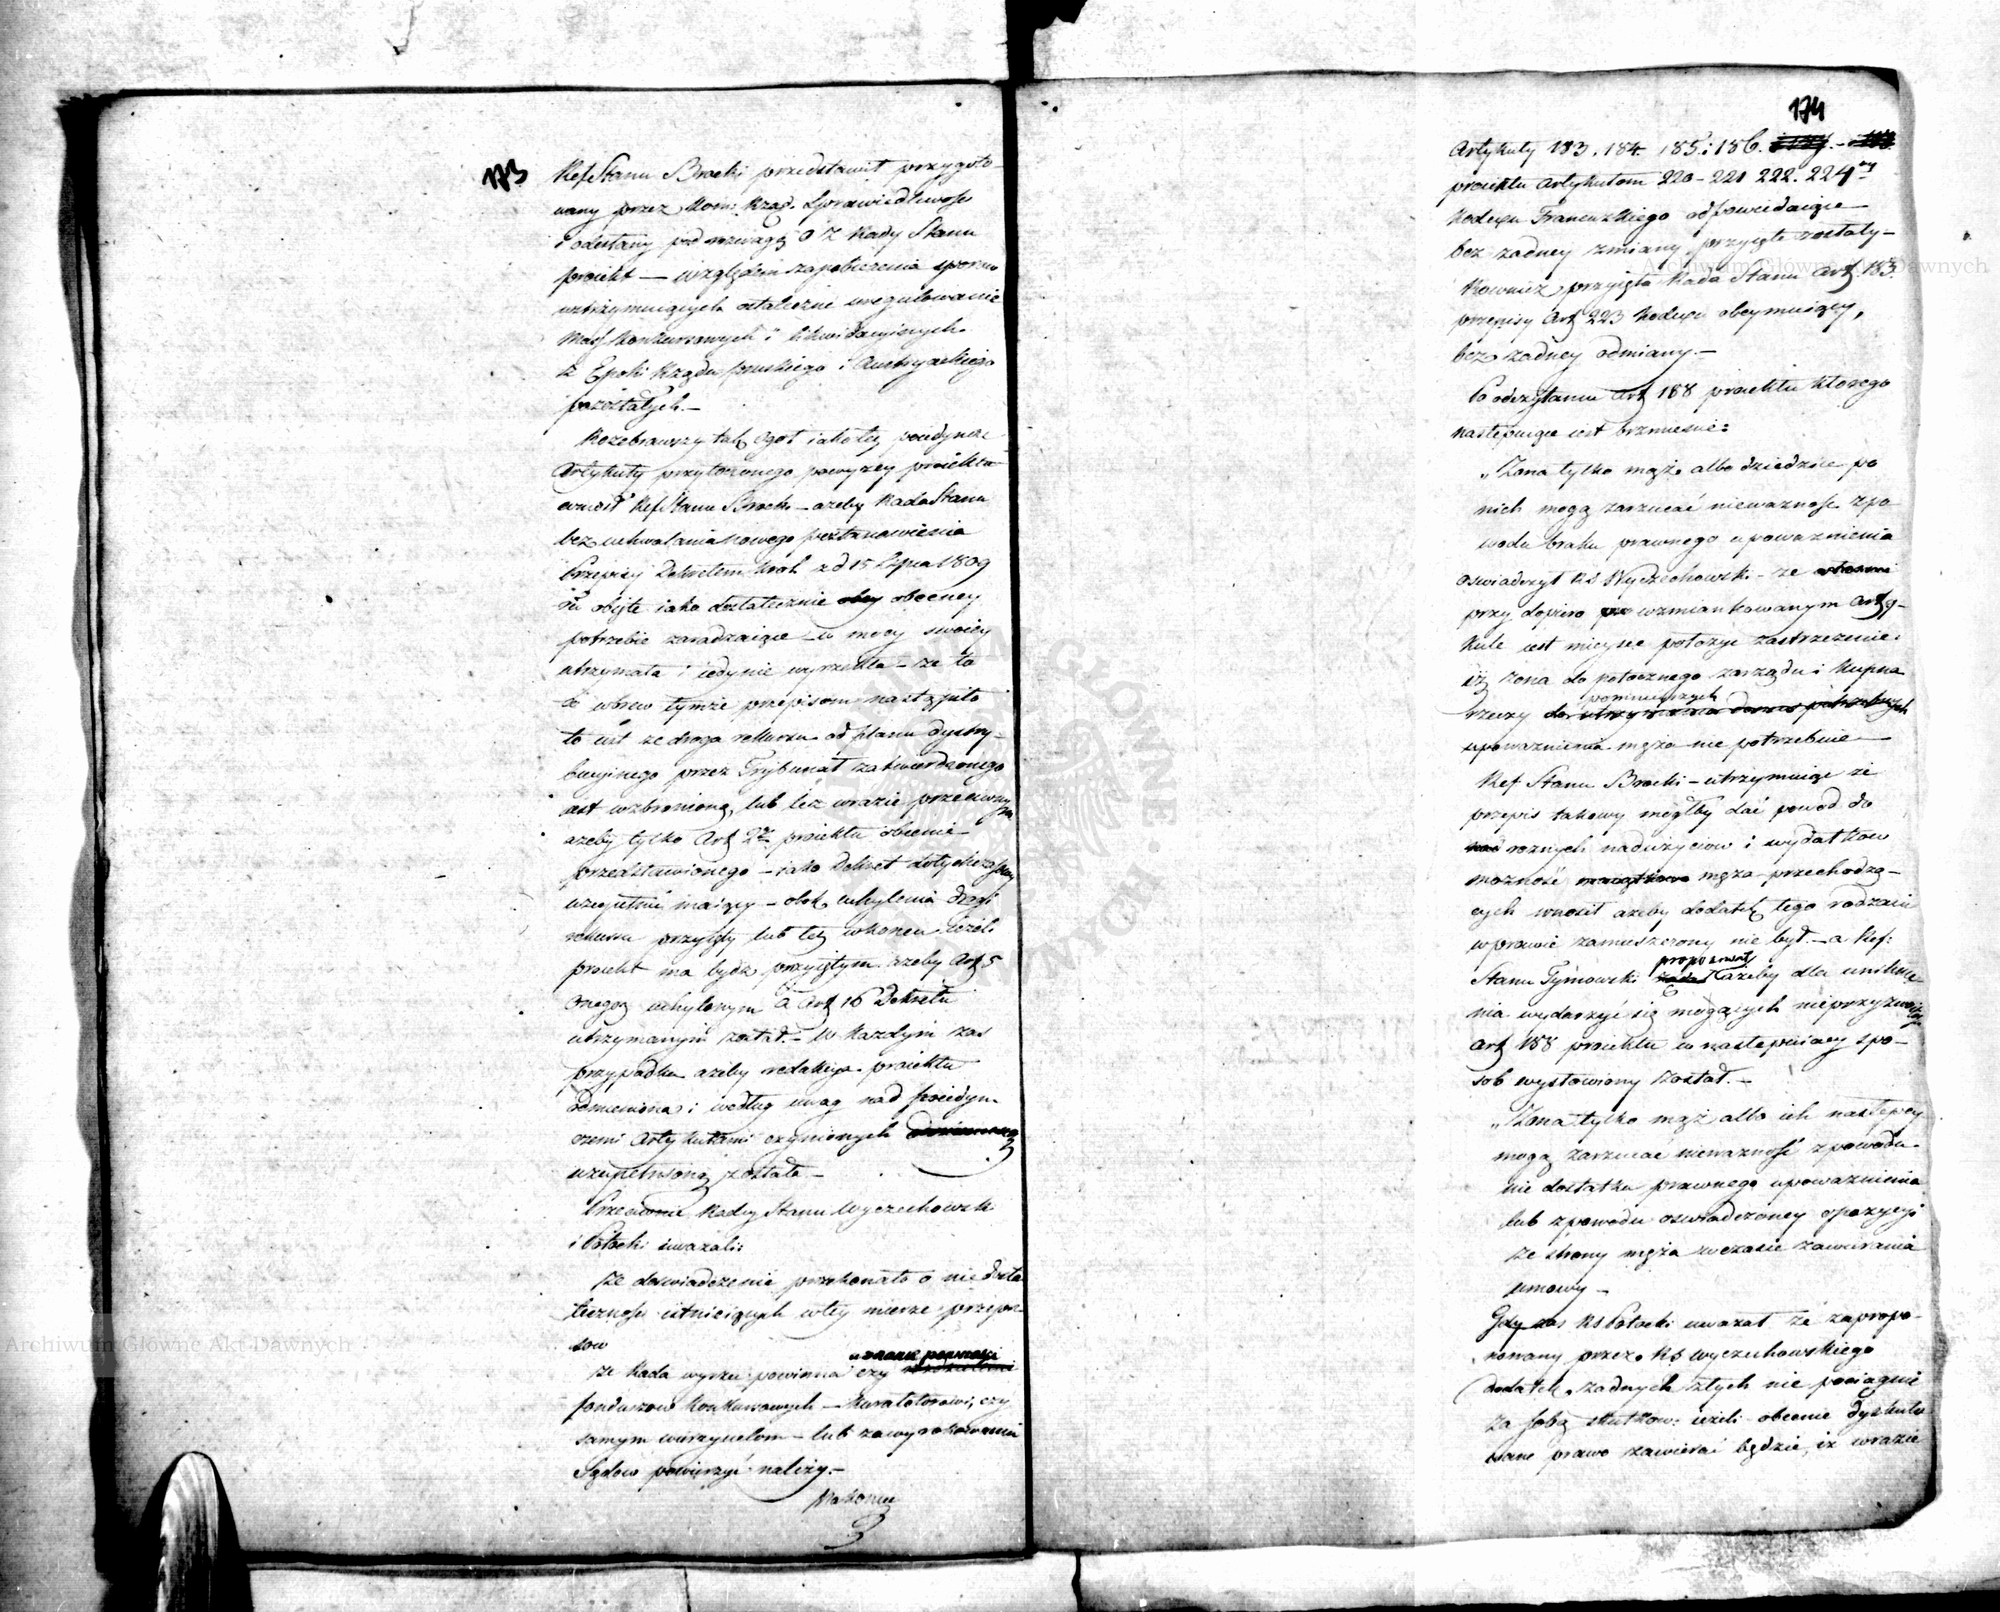 173
Ref Stanu Brocki przedstawił przygoto-
wany przez Kom: Rząd. Sprawiedliwośc
i odesłany pod rozwagę O Z Rady Stanu
proiekt — względem zapobieżenia sporow
wstrzymuiących ostateczne uregulowanie
Mass Konkursowych i likwidacyinych
z Epoki Rządu pruskiego i Austryackiego
pozostałych. —
Rozebrawszy tak ogoł iakoteż poiedyncze
Artykuły przytoczonego powyzey proiektu
wnosił Ref Stanu Brocki — azeby Rada Stanu
bez uchwalania nowego postanowienia
Przepisy Dekretem Krol z d 15 Lipca 1809
obięte iako dostatecznie obecney
potrzebie zaradzaiące — w mocy swoiey
utrzymała i iedynie wyrzekła — ze to
co wbrew tymże przepisom nastąpiło
to iest ze droga rekursu od planu dystry-
bucyinego przez Trybunał zatwierdzonego
iest wzbronioną, lub też w razie przeciwnym
azeby tylko Art 2 proiektu obecnie
przedstawionego — iako Dekret dotychczasowy
uzupełnić maiący — obok uchylenia drogi
rekursu przyięty lub też w koncu ieżeli
proiekt ma bydz przyiętym azeby Art 5
onegoz uchylonym a Art 16 Dekretu
utrzymanym został. — W Kazdym zas
przypadku azeby redakcya proiektu
odmieniona i według uwag nad poiedyn-
czemi Artykułami czynionych
uzupełnioną została —
Przeciwnie Radcy Stanu Wyczechowski
i Potocki uwazali:
Ze doswiadczenie przekonało o niedosta-
teczności istnieiących w tey mierze przepi-
sow
Ze Rada wyrzec powinna czy
funduszow Konkursowych — Kuratorowi, czy
samym wierzycielom — lub zawyrokowaniu
Sądow powierzyć nalezy. —
Nakoniec
174
Artykuły 183. 184. 185. i 186.
proiektu Artykułom 220 — 221 222. 224
Kodexu Francuzkiego odpowiedaiące
bez zadney zmiany przyięte zostały —
Rownież przyięła Rada Stanu Art. 187.
przepisy Art 223 Kodexu obeymuiący,
bez zadney odmiany. —
Po odczytaniu Art 188 proiektu ktorego
następuiące iest brzmienie:
„Zona tylko mąż albo dziedzice po
nich mogą zarzucać niewaznosc z po
wodu braku prawnego upowaznienia
oswiadczył RS Wyczechowski — ze
przy dopiero wzmiankowanym Arty-
kule iest mieysce położyc zastrzezenie
iż zona do potocznego zarządu i kupna
pomnieyszych
rzeczy do utrzymania domu potrzebnych
upowaznienia męza nie potrzebuie —
Ref Stanu Brocki — utrzymuiąc ze
przepis takowy mogłby dać powod do
roznych naduzyciow i wydatkow
mozność męza przechodzą-
cych wnosił azeby dodatek tego rodzaiu
w prawie zamieszczony nie był. — a Ref:
proponował
Stanu Tymowski azeby dla uniknie-
nia wydarzyć się mogących nieprzyzwoitosci
Art 188 proiektu w następuiący spo-
sob wysłowiony został. —
„Zona tylko mąż albo ich następcy
mogą zarzucac niewaznosć z powodu
nie dostatku prawnego upowaznienia
lub z powodu oswiadczoney opozycyi
ze strony męża w czasie zawierania
umowy —
Gdy zas RS Potocki uwazał ze zapropo-
nowany przez RS Wyczechowskiego
dodatek zadnych złych nie pociągnie
za sobą skutkow: iezeli obecnie dyskuto
wane prawo zawierać będzie, iz w razie
Archiwum Główne Akt Dawnych
Archiwum Główne Akt Dawnych